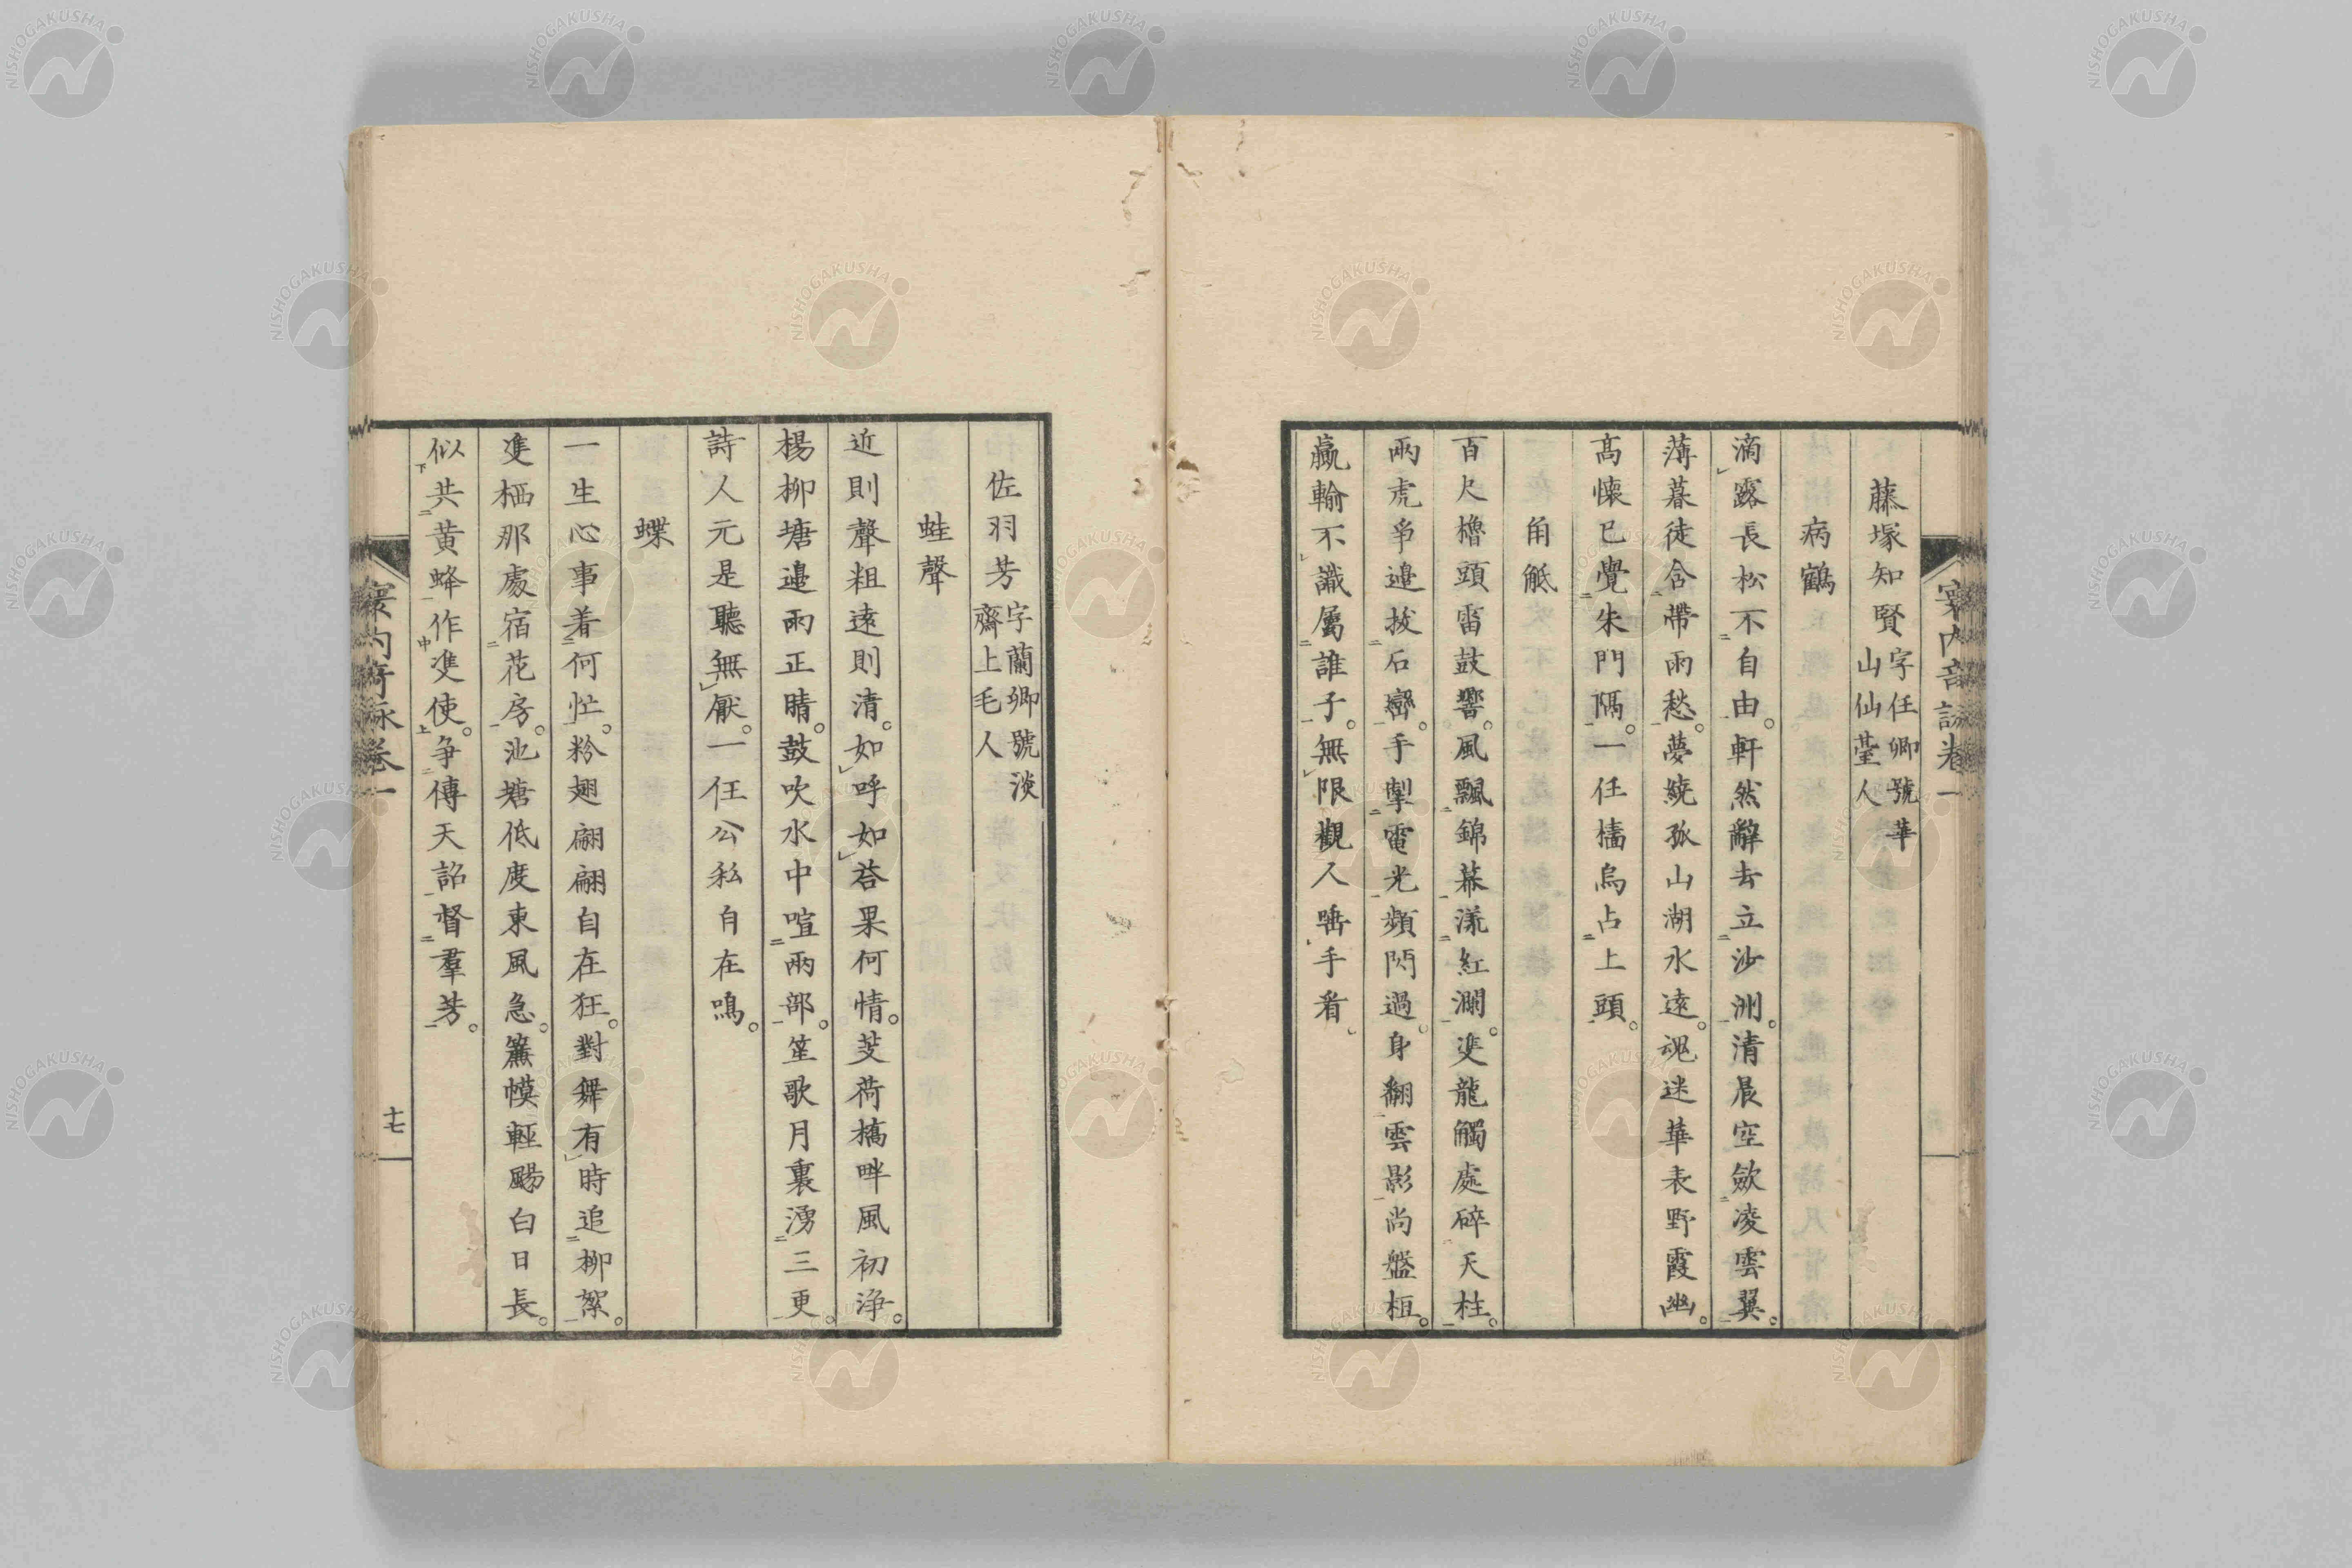 藤塚知賢字任卿號華
山仙䑓人
病鶴
滴露長松不自由。軒然辭去立沙洲。清晨空斂凌雲翼。
薄暮徒含帶雨愁。夢繞孤山湖水遠。魂迷華表野霞幽。
高懷已覺朱門隔。一任檣烏占上頭。
角觝
百尺櫓頭雷鼓響。風飄錦幕漾紅瀾。雙龍觸處碎天柱。
兩虎爭邉拔石巒。手掣電光頻閃過。身翻雲影尚盤桓。
贏輸不識屬誰子。無限觀人唾手看
佐羽芳字蘭卿號淡
齋上毛人
蛙聲
近則聲粗遠則清。如呼如荅果何情。芰荷橋畔風初浄。
楊柳塘邉雨正晴。鼓吹水中喧兩部。笙歌月裏湧三更。
詩人元是聽無厭。一任公私自在鳴。
蝶
一生心事着何忙。粉翅翩翩自在狂。對舞有時追柳絮。
隻栖那處宿花房。池塘低度東風急。簾幙輕颺白日長。
似共黄蜂作隻使。爭傳天詔督羣芳。
寰内奇詠卷一
十七
NISHOGAKUSHA